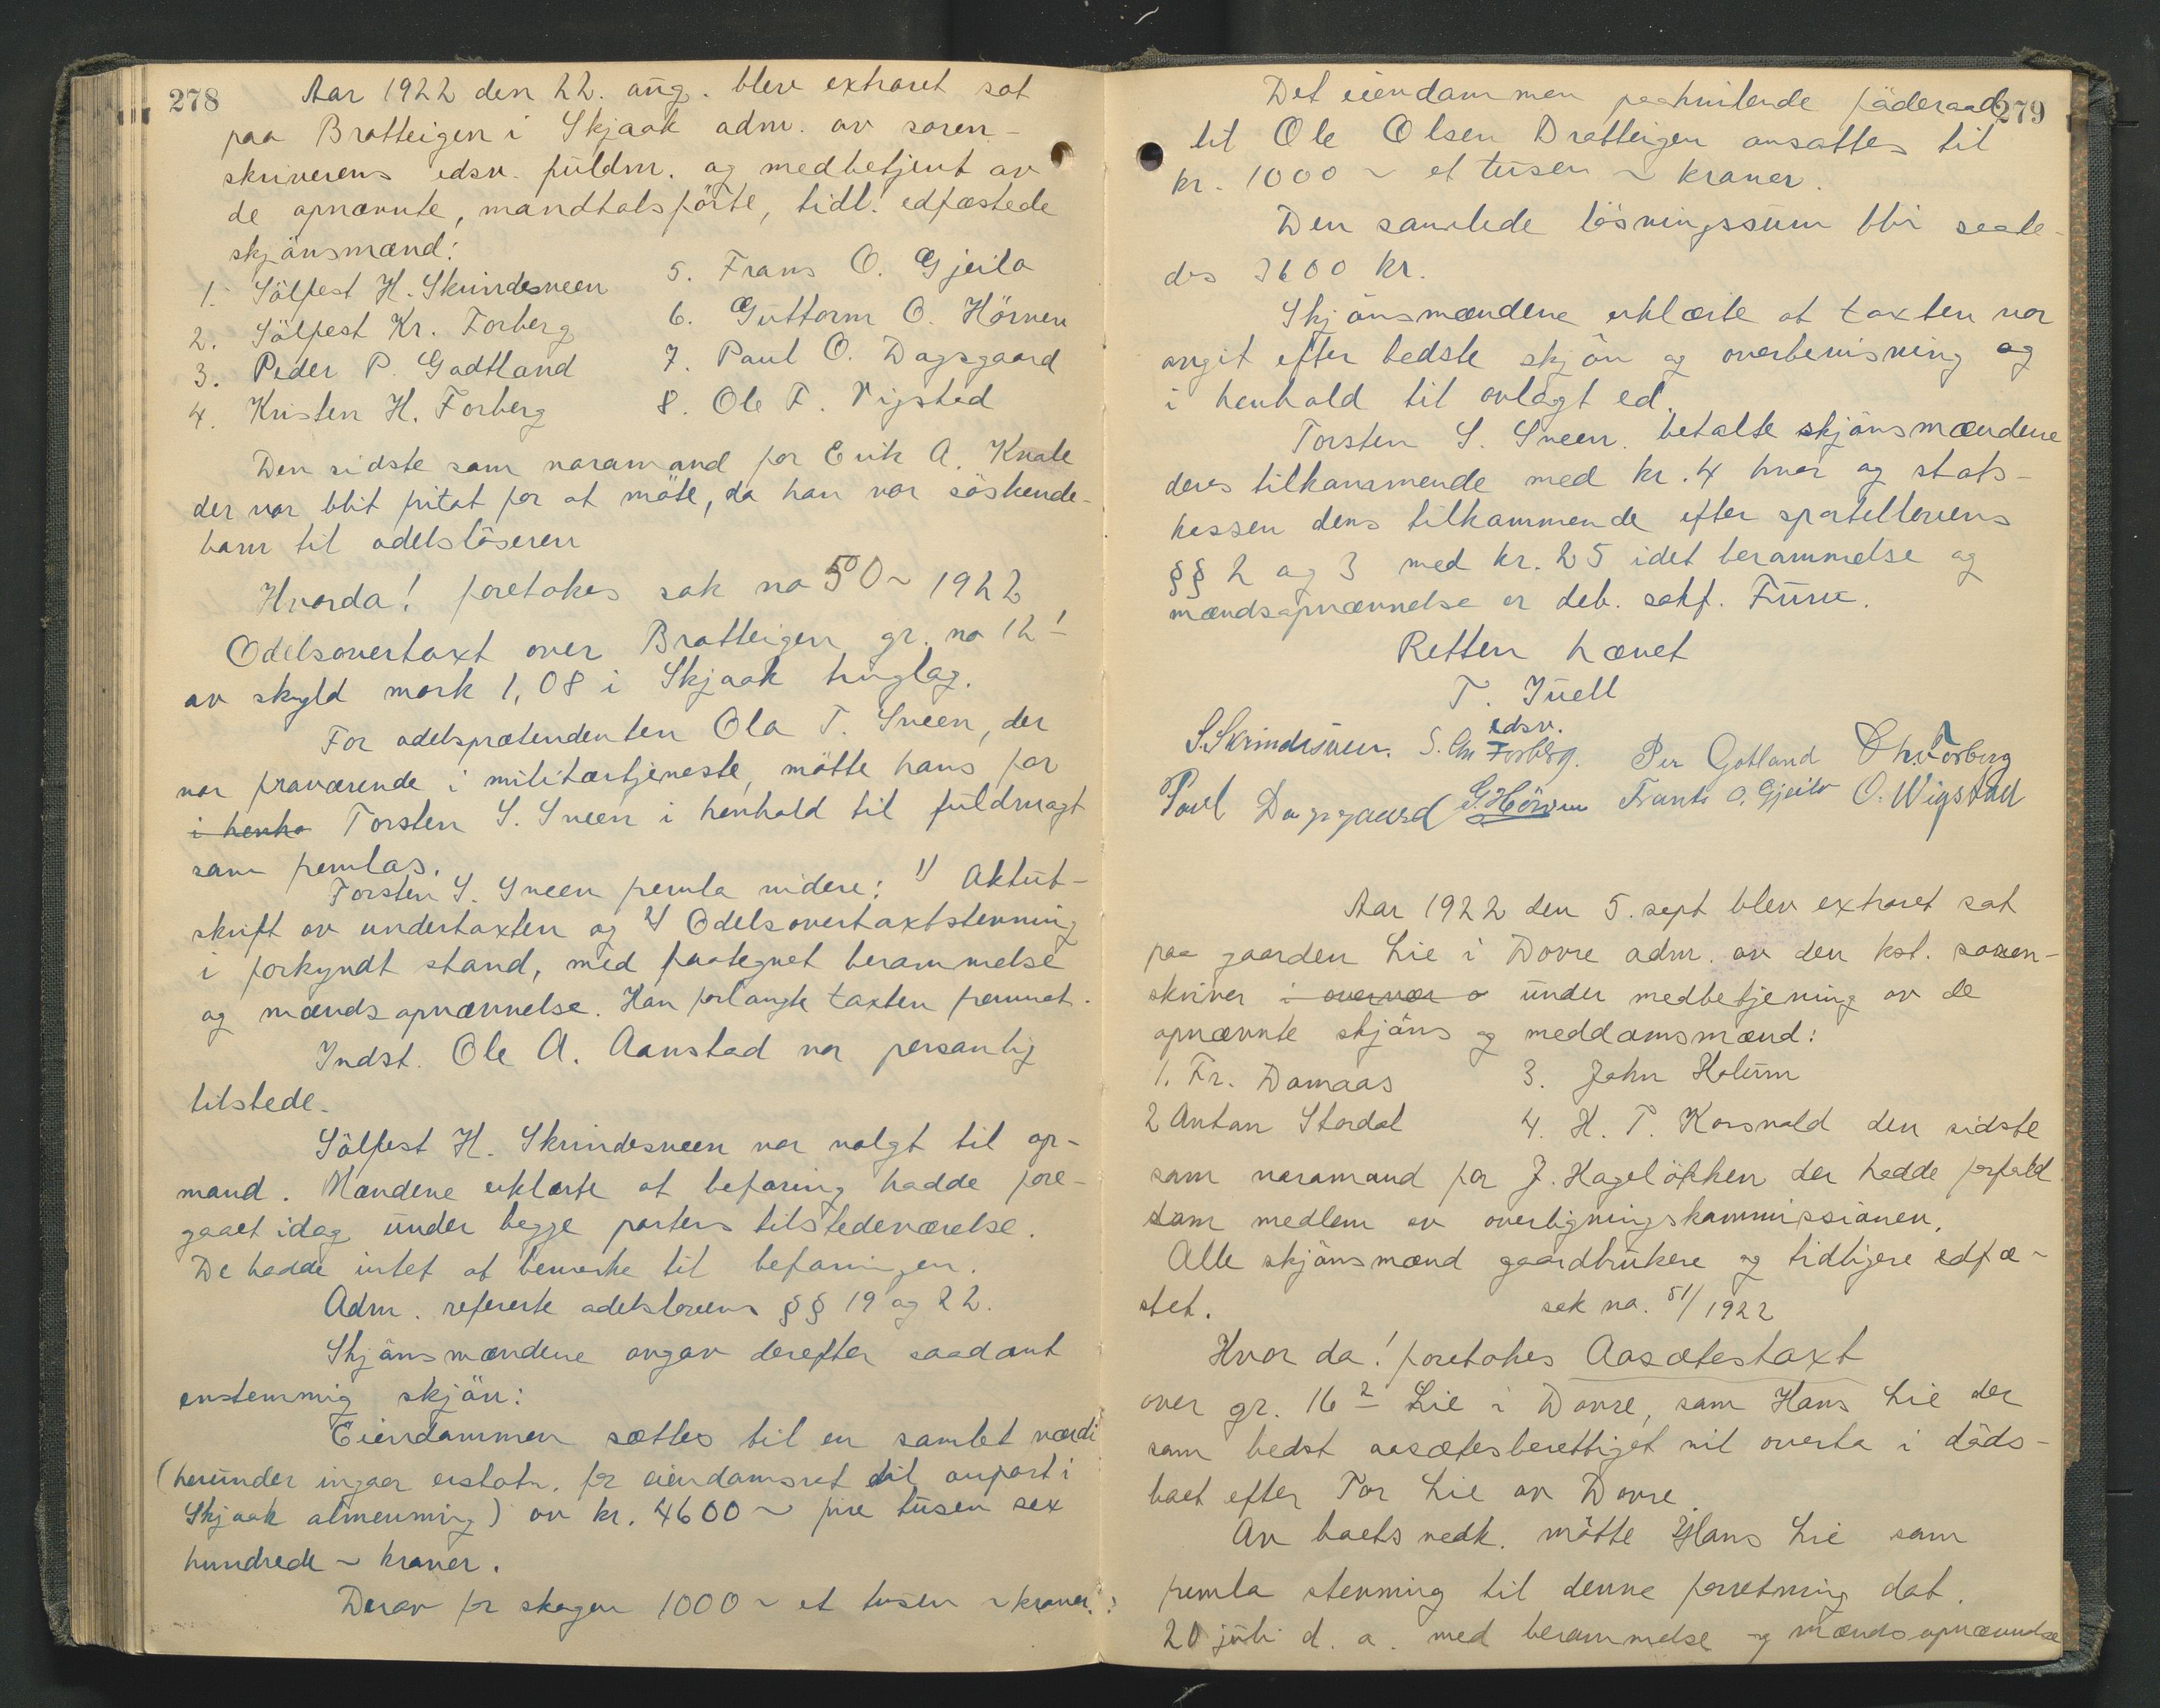 278
Aar 1922 den 22. aug. blev extraret sat
paa Bratteigen i Skjaak adm. av soren-
skriverens edsv. fuldm. og medbetjent av
de opnævnte, mandtalsförte, tidl. edfæstede
skjönsmænd:
1. Sölfest H. Skrindesveen
2. Sölfest Kr. Forberg
3. Peder P. Godtland
4. Kristen H. Forberg
5. Frans O. Gjeilo
6. Guttorm O. Hörven
7. Paul O. Dagsgaard
8. Ole F. Vigsted
Den sidste som varamand for Erik A. Kvale
der var blit fritat for at möte, da han var söskende-
barn til odelslöseren
Hvorda! foretokes sak no 50 ~ 1922
Odelsovertaxt over Bratteigen gr. no 12 1
av skyld mark 1,08 i Skjaak tinglag.
For odelsprætendenten Ola T. Sveen, der
var fraværende i militærtjeneste, mötte hans far
i henho Torsten S. Sveen i henhold til fuldmagt
som fremlas.
Torsten S. Sveen fremla videre: 1) Aktut-
skrift av undertaxten og 2) Odelsovertaxtstevning
i forkyndt stand, med paategnet berammelse
og mændsopnævnelse. Han forlangte taxten fremmet.
Indst. Ole A. Aanstad var personlig
tilstede.
Sölfest H. Skrindesveen var valgt til op-
mand. Mændene erklærte at befaring hadde fore-
gaaet idag under begge parters tilstedeværelse.
De hadde intet at bemerke til befaringen.
Adm. refererte odelslovens §§ 19 og 22.
Skjönsmændene avgav derefter saadant
enstemmig skjön:
Eiendommen sættes til en samlet værdi
(herunder ingaar erstatn. for eiendomsret til anpart i
Skjaak almenning) av kr. 4600 ~ fire tusen sex
hundrede ~ kroner.
Derav for skogen 1000 ~ et tusen ~ kroner.
279
Det eiendommen paahvilende föderaad
til Ole Olsen Bratteigen ansættes til
kr. 1000 ~ et tusen ~ kroner.
Den samlede lösningssum blir saale-
des 3600 kr.
Skjönsmændene erklærte at taxten var
avgit efter bedste skjön og overbevisning og
i henhold til avlagt ed.
Torsten S. Sveen betalte skjönsmændene
deres tilkommende med kr. 4 hver og stats-
kassen dens tilkommende efter sportellovens
§§ 2 og 3 med kr. 25 idet berammelse og
mændsopnævnelse er deb. sakf. Furu.
Retten hævet
T. Juell
edsv.
S. Skrindsveen. S. Chr Forberg. Per Gotland Chr. Forberg
Povl Dagsgaard G. Hörven Frants O. Gjeilo O. Wigstad
Aar 1922 den 5. sept blev extraret sat
paa gaarden Lie i Dovre adm. av den kst. soren-
skriver i overvær o under medbetjening av de
opnævnte skjöns og meddomsmænd:
1. Fr. Domaas
2 Anton Stordal
3. John Holum
4. H. P. Korsvold den sidste
som varamand for J. Hagelökken der hadde forfald
som medlem av overligningskommissionen.
Alle skjönsmænd gaardbrukere og tidligere edfæ-
stet.
sak no. 51/1922
Hvor da! foretokes Aasætestaxt
over gr. 16 2 Lie i Dovre, som Hans Lie der
som bedst aasætesberettiget vil overta i döds-
boet efter Tor Lie av Dovre.
Av boets vedk. mötte Hans Lie som
fremla stevning til denne forretning dat.
20 juli d. a. med berammelse og mændsopnævnelse